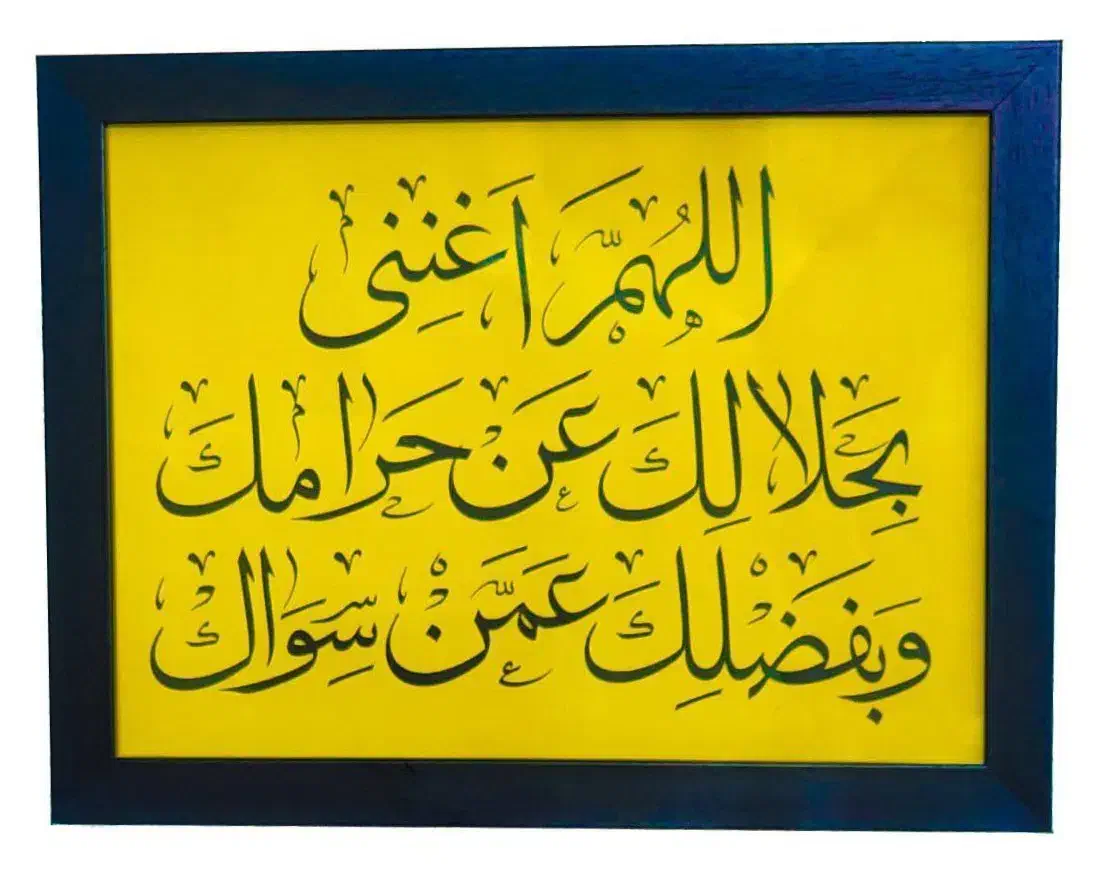 اللهُمَّ اَغْنِنِى
بِحَلَالِكَ عَنْ حَرَامِكَ
وَبِفَضْلِكَ عَمَّنْ سِوَاكَ